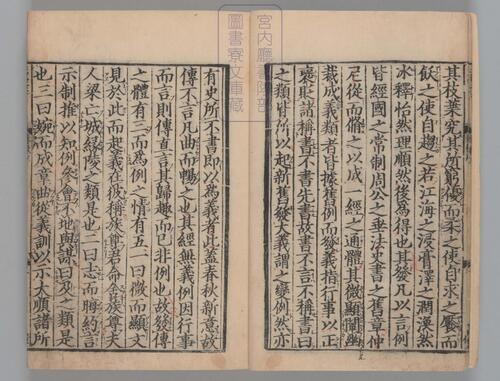 其枝葉究其所窮優而柔之使自求之饜而
飫之使自趨之若江海之浸膏澤之潤渙然
冰釋怡然理順然後為得也其發凡以言例
皆經國之常制周公之垂法史書之舊章仲
尼從而脩之以成一經之通體其微顯闡幽
裁成義類者皆據舊例而發義指行事以正
褒貶諸稱書不書先書故書不言不稱書曰
之類皆所以起新舊發大義謂之變例然亦
宮内廳書陵部
圖書寮文庫藏
有史所不書即以為義者此蓋春秋新意故
傳不言凡曲而暢之也其經無義例因行事
而言則傳直言其歸趣而已非例也故發傳
之體有三而為例之情有五一曰微而顯文
見於此而起義在彼稱族尊君命舍族尊夫
人梁亡城緣陵之類是也二曰志而晦約言
示制推以知例參會不地與謀曰及之類是
也三曰婉而成章曲從義訓以示大順諸所